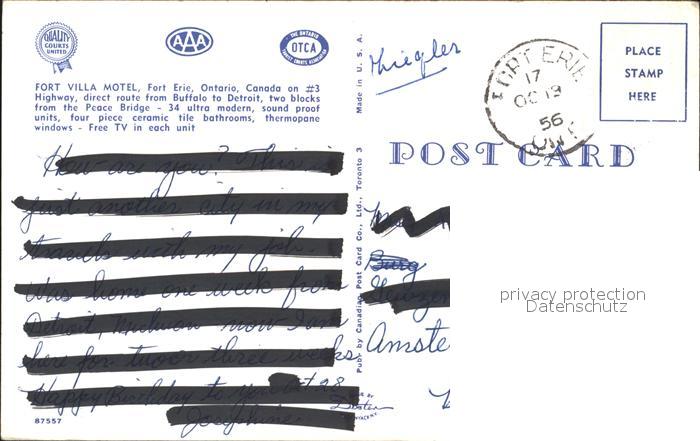 QUALITY COURTS UNITED
AAA
THE ONTARIO
OTCA
FORT VILLA MOTEL, Fort Erie, Ontario, Canada on #3
Highway, direct route from Buffalo to Detroit, two blocks
from the Peace Bridge - 34 ultra modern, sound proof
units, four piece ceramic tile bathrooms, thermopane
windows - Free TV in each unit
How are you? This is
just another city in my
travels with my job.
Was home one week from
Detroit, now I am
here for two or three weeks
Happy Birthday to you Oct 28
Josephine
87557
Made in U. S. A.
Pub. by Canadian Post Card Co., Ltd., Toronto 3
FORT ERIE
17
OC 19
56
ONT
PLACE
STAMP
HERE
POST CARD
Amste
privacy protection
Datenschutz